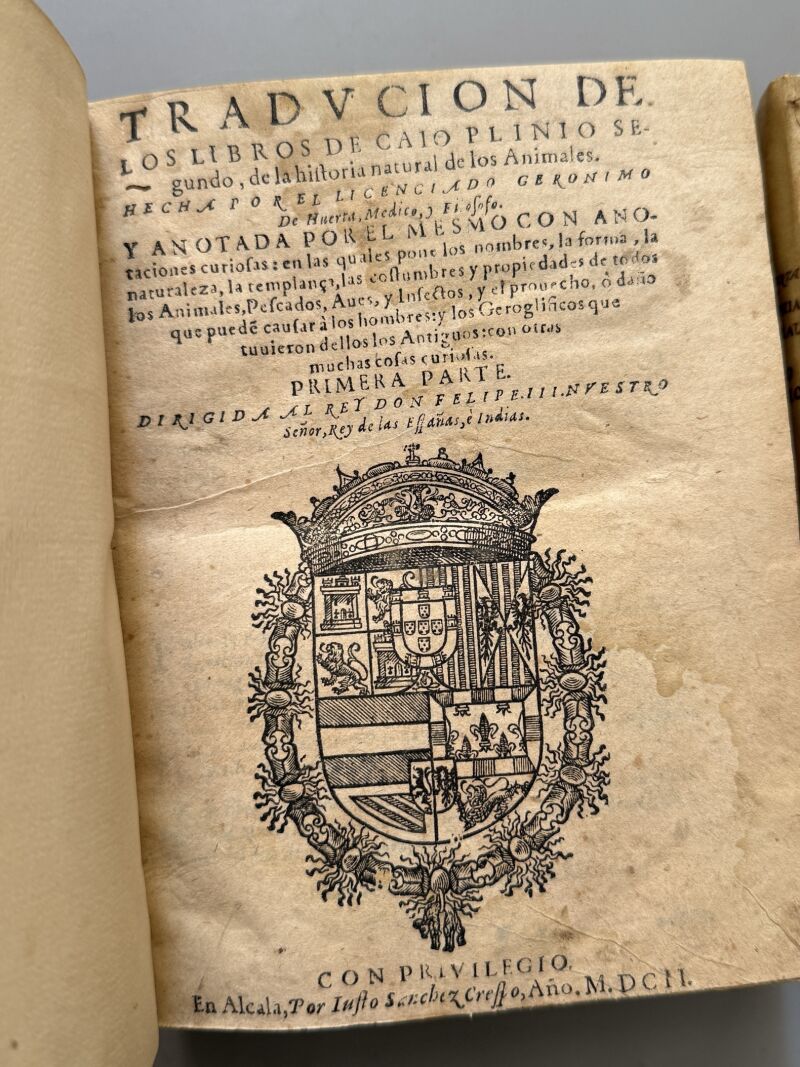 TRADVCION DE
LOS LIBROS DE CAIO PLINIO SE-
gundo, de la hiſtoria natural de los Animales.
HECHA POR EL LICENCIADO GERONIMO
De Huerta, Medico, y Filoſofo.
Y ANOTADA POR EL MESMO CON ANO-
taciones curioſas: en las quales pone los nombres, la forma, la
naturaleza, la templança, las coſtumbres y propiedades de todos
los Animales, Peſcados, Aues, y Inſectos, y el prouecho, ò daño
que puedẽ cauſar à los hombres: y los Geroglificos que
tuuieron dellos los Antiguos: con otras
muchas coſas curioſas.
PRIMERA PARTE.
DIRIGIDA AL REY DON FELIPE.III.NVESTRO
Señor, Rey de las Eſpañas, è Indias.
CON PRIVILEGIO.
En Alcala, Por Iuſto Sanchez Creſpo, Año. M. DCII.